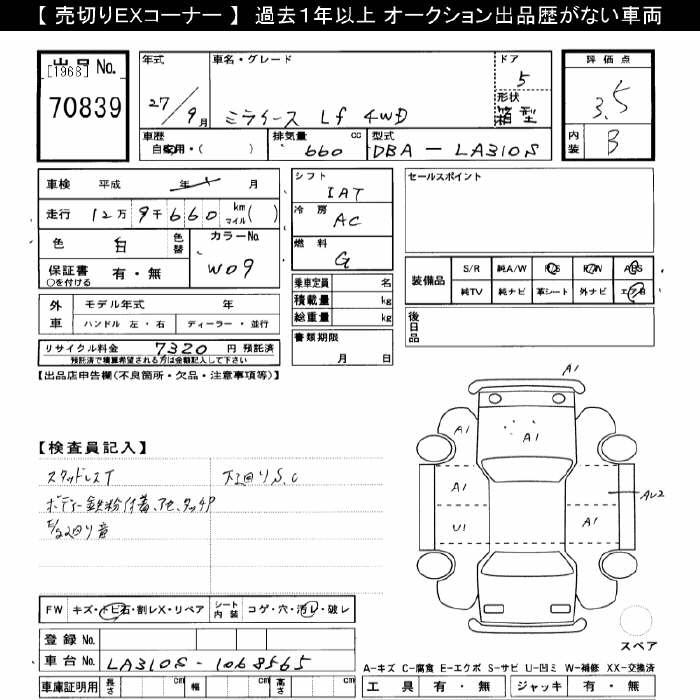 【 売切りEXコーナー 】 過去1年以上 オークション出品歴がない車両
出品 No.
[1968]
70839
年式
27/9月
車名・グレード
ミライース Lf 4WD
ドア
5
形状
箱型
評価点
3.5
内装
B
車歴
自家用・( )
排気量 cc
660
型式
DBA - LA310S
車検 平成 年 月
走行 12万 9千 660 km マイル ( )
色 白 色替
カラーNo.
W09
保証書 有・無
○を付ける
外車
モデル年式 年
ハンドル 左・右 ディーラー・並行
リサイクル料金 7320 円 預託済
預託済で積算希望される方は金額記入して下さい
シフト
IAT
冷房
AC
燃料
G
乗車定員 名
積載量 kg
総重量 kg
書類期限
月 日
セールスポイント
装備品
S/R 純A/W P/S P/W ABS
純TV 純ナビ 革シート 外ナビ エアB
後日品
【出品店申告欄(不良箇所・欠品・注意事項等)】
【検査員記入】
スタッドレスT 下回りS.C
ボディー鉄粉付着、アセ、タッチP
E/g回り音
A1
A1
A1
U1
A1
AU2
スペア
FW キズ・トビ石・割レX・リペア シート内装 コゲ・穴・汚レ・破レ
登録 No.
車台 No. LA310S-1068565
車庫証明用 長さ cm 幅 cm 高さ cm
A-キズ C-腐食 E-エクボ S-サビ U-凹ミ W-補修 XX-交換済
工具 有・無 ジャッキ 有・無